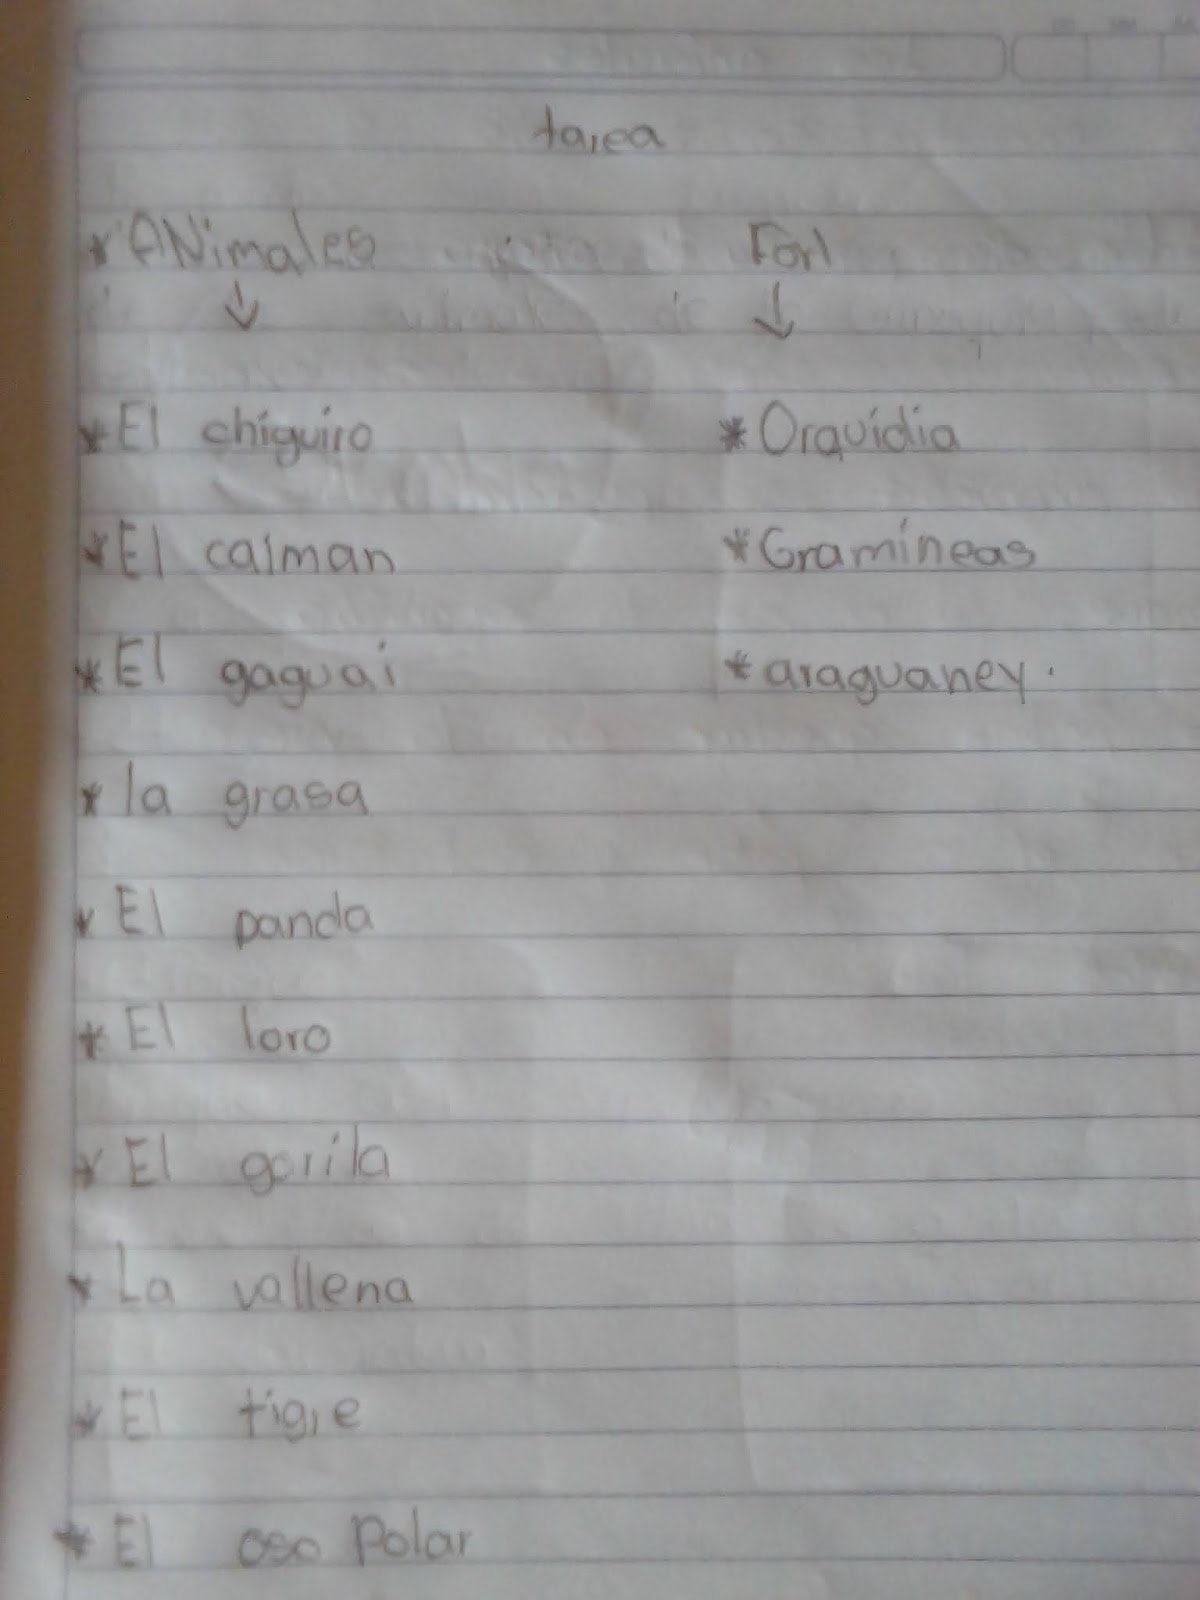 tarea
* ANimales Forl
* El chiguiro * Orquídia
* El caiman * Gramíneas
* El gaguai * araguaney.
* la grasa
* El panda
* El loro
* El gorila
* La vallena
* El tigre
* El oso Polar